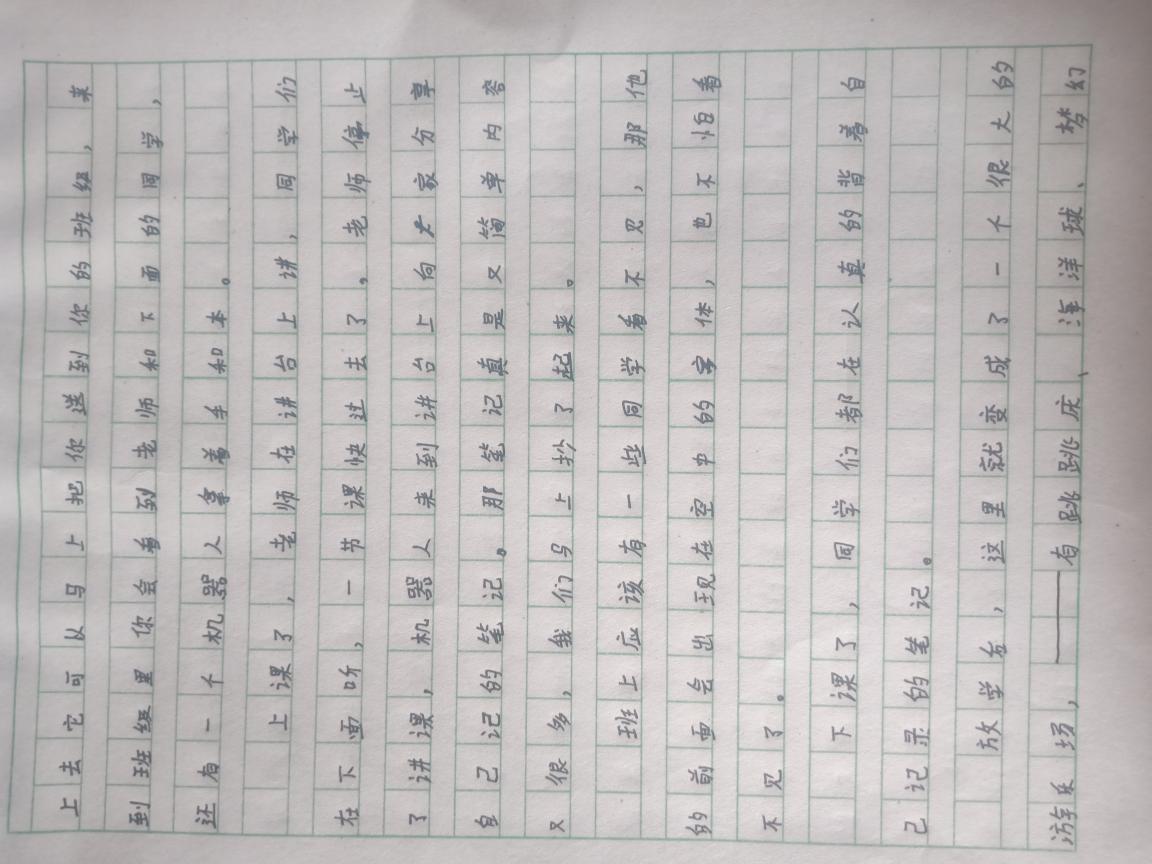 上去它可从马上把你送到你的班组，来
到班级里你会看到老师和下面的同学，
还有一个机器人拿着手和本。
上课了，老师在讲台上讲，同学们
在下面听，一节课快过去了，老师停止
了讲课，机器人来到讲台上向大家分享
自己记的笔记。那笔记真是又简单内容
又很多，我们马上抄了起来。
班上应该有一些同学看不见，那他
的前面会出现在空中的字体，也不怕看
不见了。
下课了，同学们都在认真的背着自
己记录的笔记。
放学后，这里就变成了一个很大的
游乐场，——有跳跳床、海洋球、梦幻